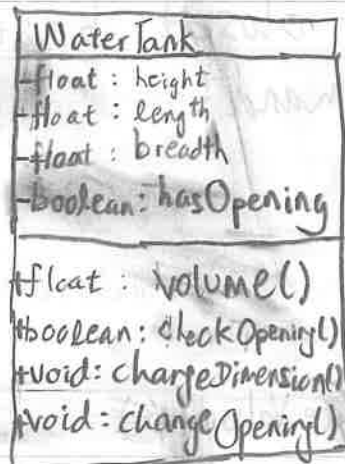 WaterTank
-float : height
-float : length
-float : breadth
-boolean: hasOpening
+float : volume()
+boolean: checkOpening()
+void: changeDimension()
+void: changeOpening()